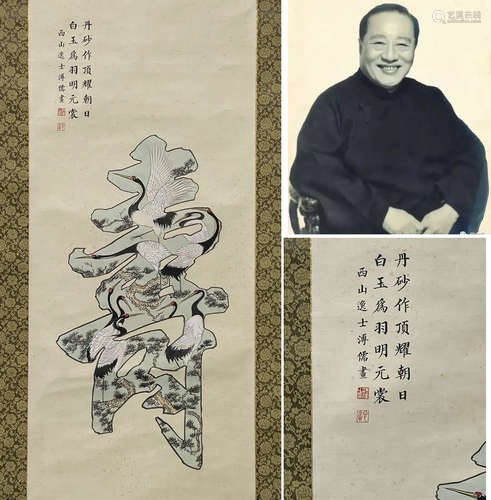 丹砂作頂耀朝日
白玉爲羽明元裳
西山逸士溥儒畫
壽
丹砂作頂耀朝日
白玉爲羽明元裳
西山逸士溥儒畫